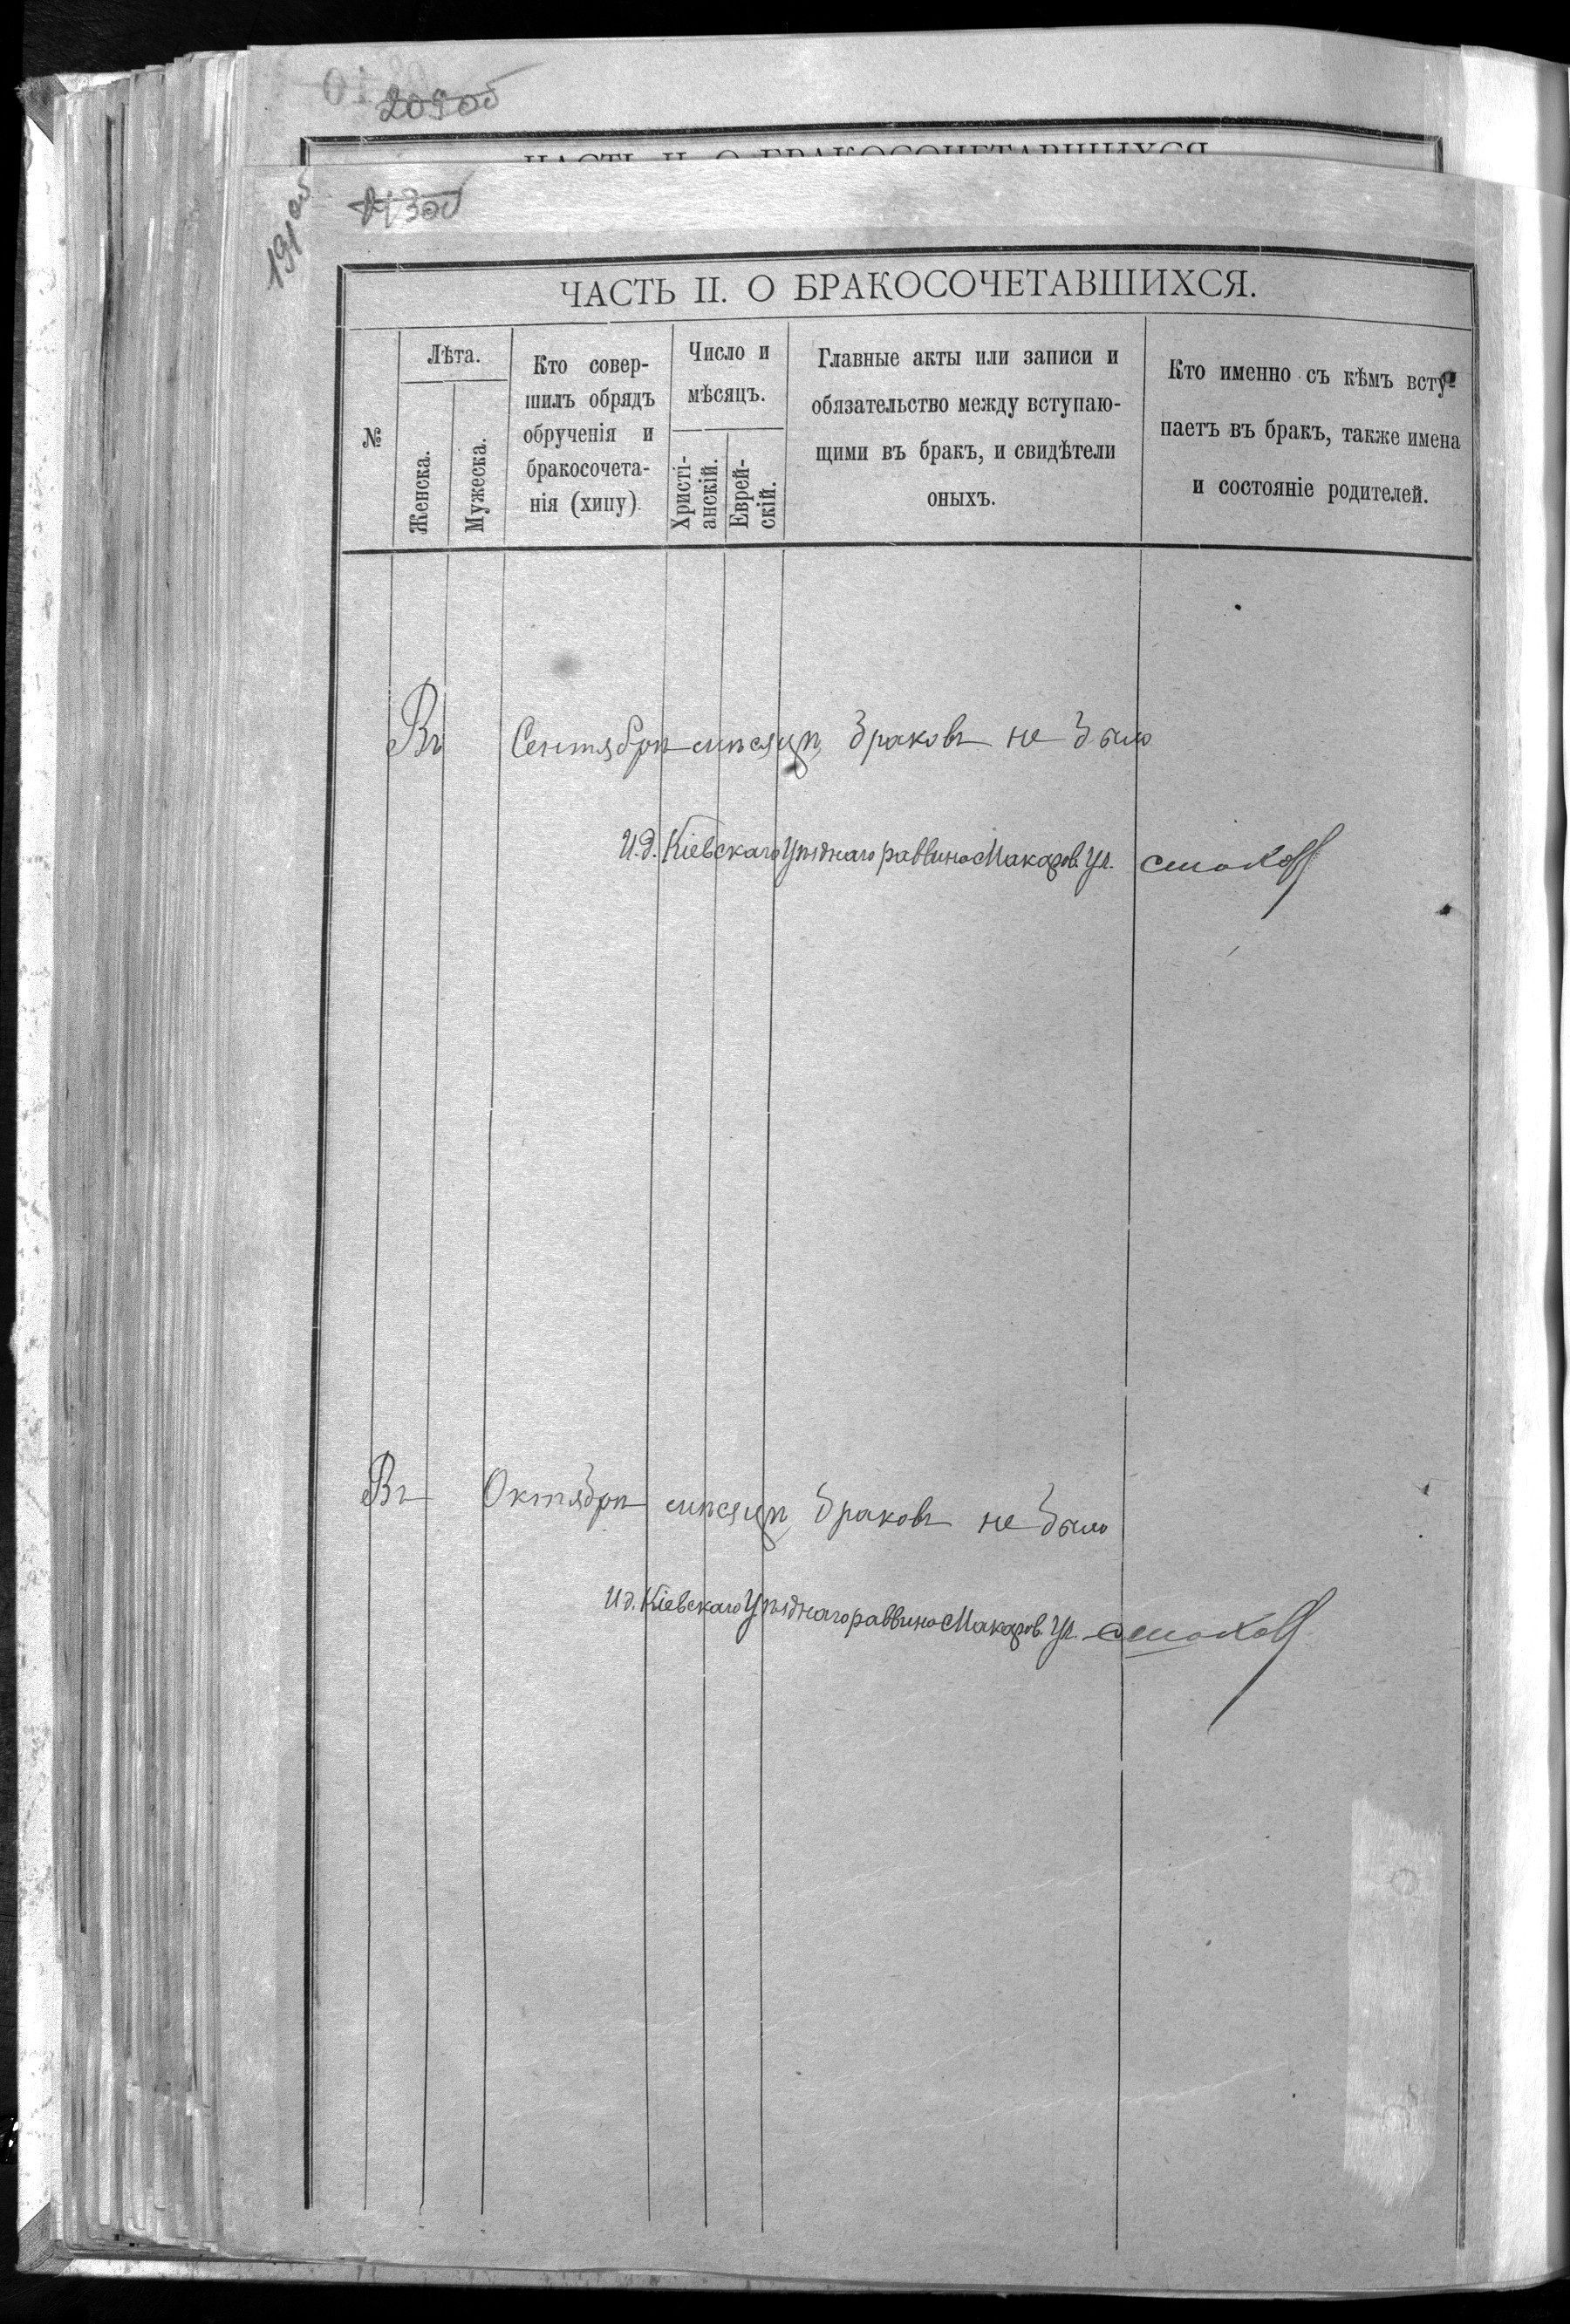 209об
ЧАСТЬ II. О БРАКОСОЧЕТАВШИХСЯ.
213об
191об
ЧАСТЬ II. О БРАКОСОЧЕТАВШИХСЯ.
№
Лѣта.
Женска.
Мужеска.
Кто совер-
шилъ обрядъ
обрученія и
бракосочета-
нія (хипу)
Число и
мѣсяцъ.
Христі-
анскій.
Еврей-
скій.
Главные акты или записи и
обязательство между вступаю-
щими въ бракъ, и свидѣтели
оныхъ.
Кто именно съ кѣмъ всту-
паетъ въ бракъ, также имена
и состояніе родителей.
Въ Сентябрѣ мѣсяцѣ браковъ не было
И.д. Кіевскаго Уѣзднаго раввина Макаров. Уч.
Въ Октябрѣ мѣсяцѣ браковъ не было
И.д. Кіевскаго Уѣзднаго раввина Макаров. Уч.